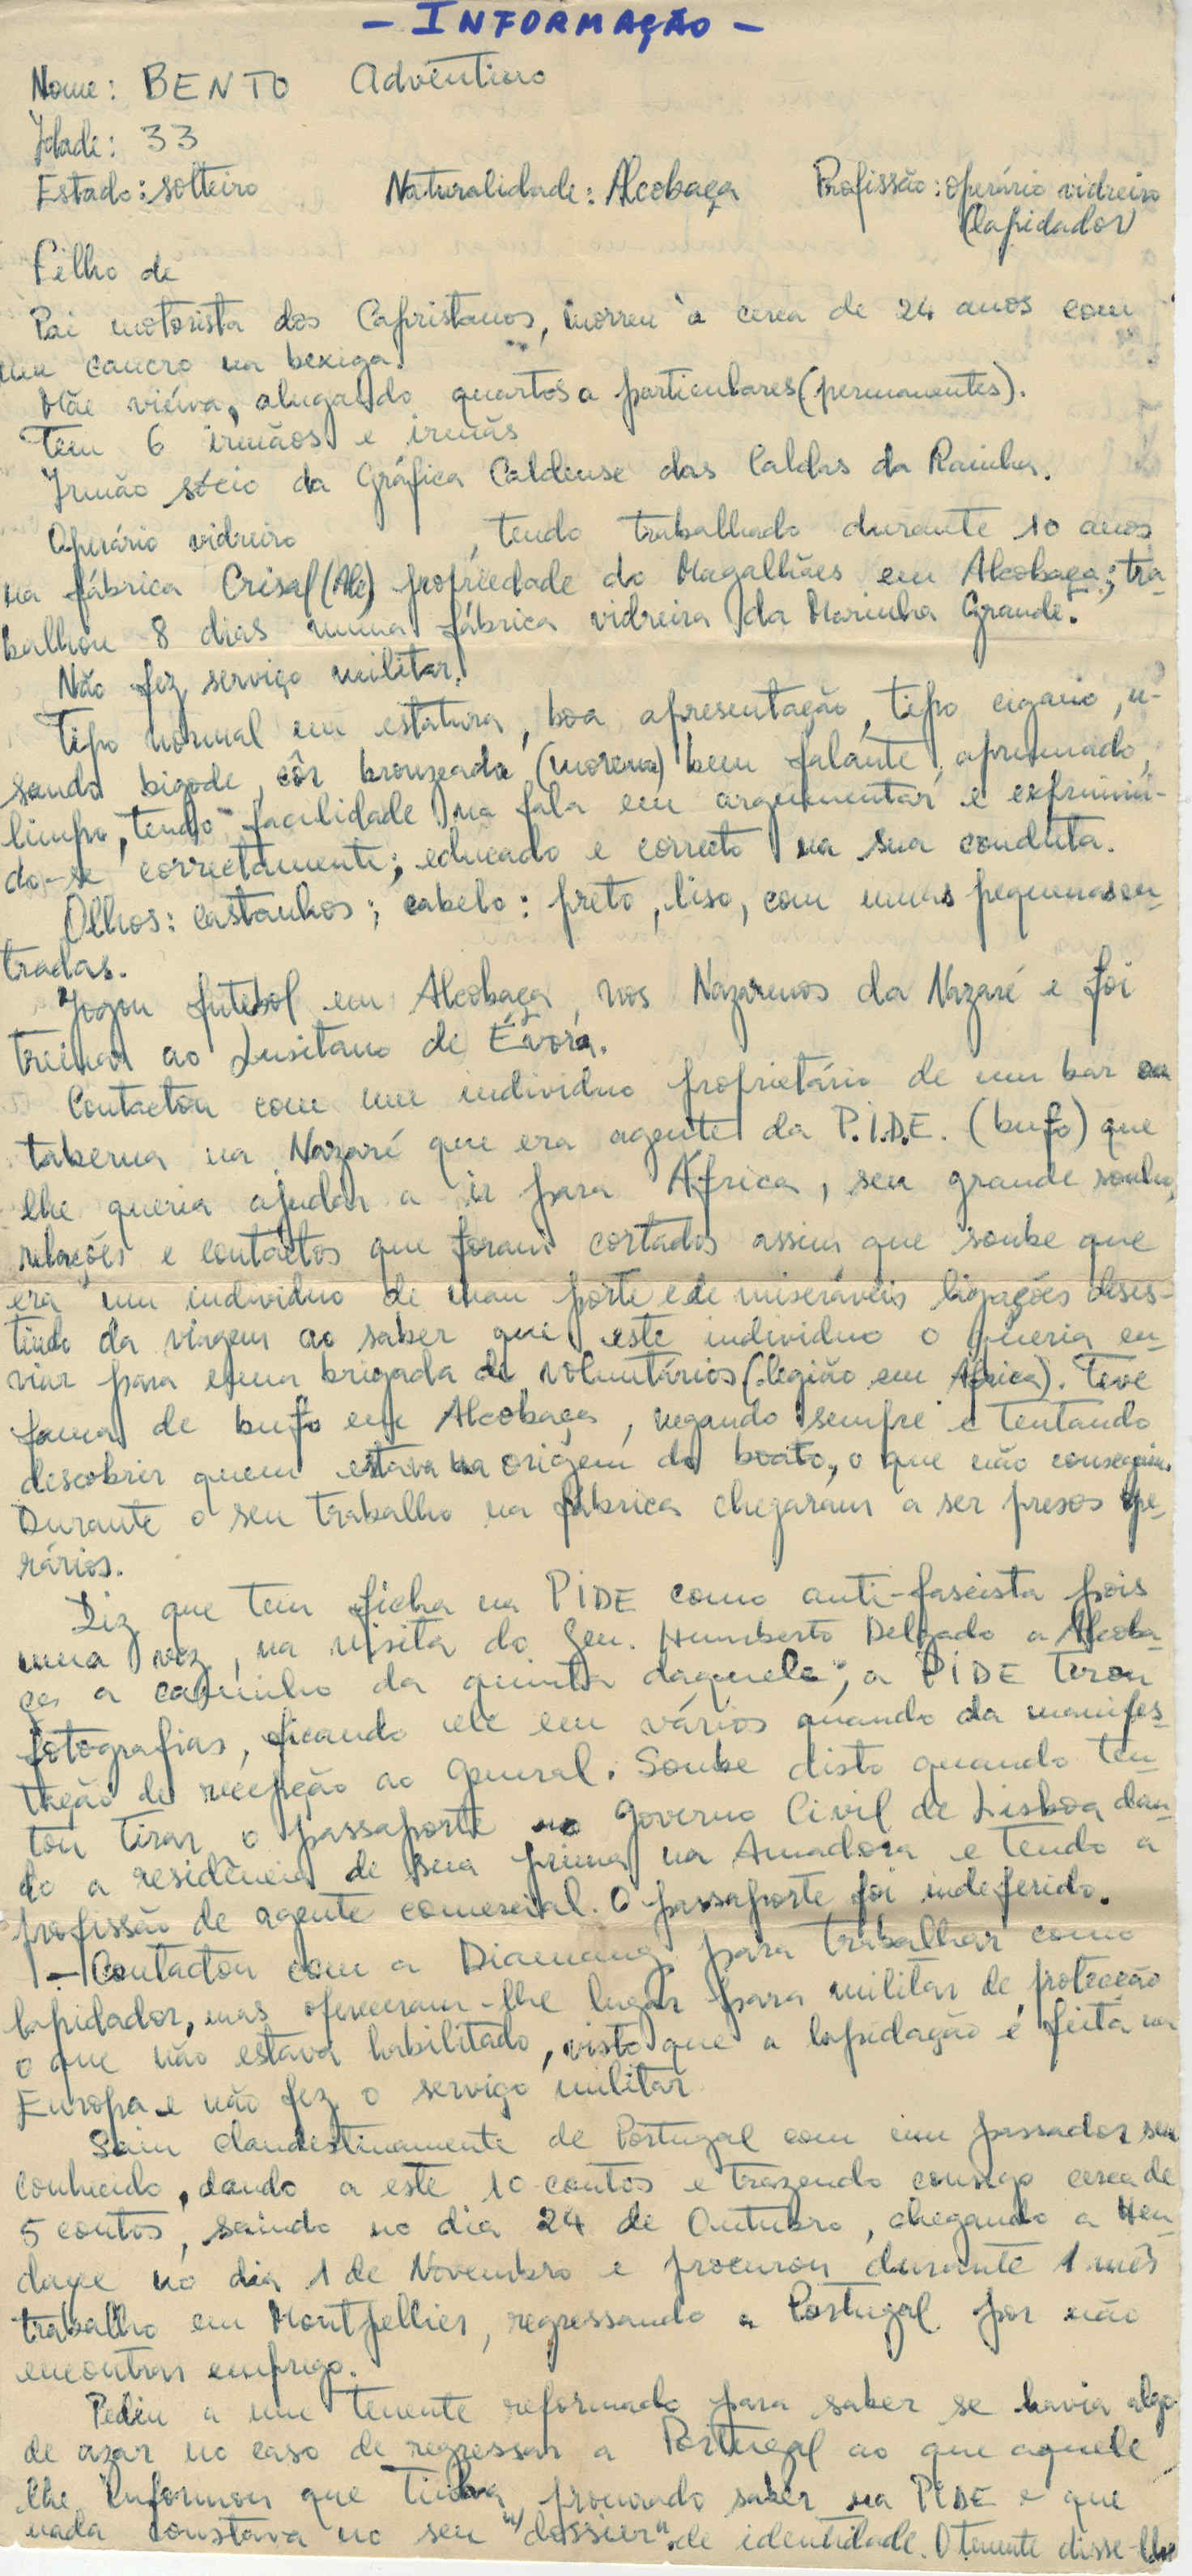 - INFORMAÇÃO -
Nome: BENTO Adventino
Idade: 33
Estado: solteiro Naturalidade: Alcobaça Profissão: operário vidreiro
(lapidador)
Filho de
Pai motorista dos Capristanos, morreu à cerca de 24 anos com
um cancro na bexiga.
Mãe viúva, alugando quartos a particulares (permanentes).
Tem 6 irmãos e irmãs
Irmão sócio da Gráfica Caldense das Caldas da Rainha.
Operário vidreiro , tendo trabalhado durante 10 anos
na fábrica Crisal (Alc) propriedade do Magalhães em Alcobaça; tra-
balhou 8 dias numa fábrica vidreira da Marinha Grande.
Não fez serviço militar.
Tipo normal em estatura, boa apresentação, tipo cigano, u-
sando bigode, côr bronzeada (morena) bem falante, aprumado,
limpo, tendo facilidade na fala em argumentar e exprimin-
do-se correctamente; educado e correcto na sua conduta.
Olhos: castanhos; cabelo: preto, liso, com umas pequenas en-
tradas.
Jogou futebol em Alcobaça, nos Nazarenos da Nazaré e foi
treinar ao Lusitano de Évora.
Contactou com um individuo proprietário de um bar ou
taberna na Nazaré que era agente da P.I.D.E. (bufo) que
lhe queria ajudar a ir para África, seu grande sonho,
relações e contactos que foram cortados assim que soube que
era um individuo de mau porte e de miseráveis ligações desis-
tindo da viagem ao saber que este individuo o queria en-
viar para uma brigada de voluntários (legião em África). Teve
fama de bufo em Alcobaça, negando sempre e tentando
descobrir quem estava na origem do boato, o que não conseguiu.
Durante o seu trabalho na fábrica chegaram a ser presos ope-
rários.
Diz que tem ficha na PIDE como anti-fascista pois
uma vez, na visita do Gen. Humberto Delgado a Alcoba-
ça a caminho da quinta daquele; a PIDE tirou
fotografias, ficando ele em vários quando da manifes-
tação de recepção ao general. Soube disto quando ten-
tou tirar o passaporte no Governo Civil de Lisboa dan-
do a residência de sua prima na Amadora e tendo a
profissão de agente comercial. O passaporte foi indeferido.
- Contactou com a Diamang para trabalhar como
lapidador, mas ofereceram-lhe lugar para militar de protecção
o que não estava habilitado, visto que a lapidação é feita na
Europa e não fez o serviço militar
Saiu clandestinamente de Portugal com um passador seu
conhecido, dando a este 10 contos e trazendo consigo cerca de
5 contos, saindo no dia 24 de Outubro, chegando a Hen-
daye no dia 1 de Novembro e procurou durante 1 mês
trabalho em Montpellier, regressando a Portugal por não
encontrar emprego.
Pediu a um tenente reformado para saber se havia algo
de azar no caso de regressar a Portugal ao que aquele
lhe informou que tinha procurado saber na PIDE e que
nada constava no seu "dossier" de identidade. O tenente disse-lhe